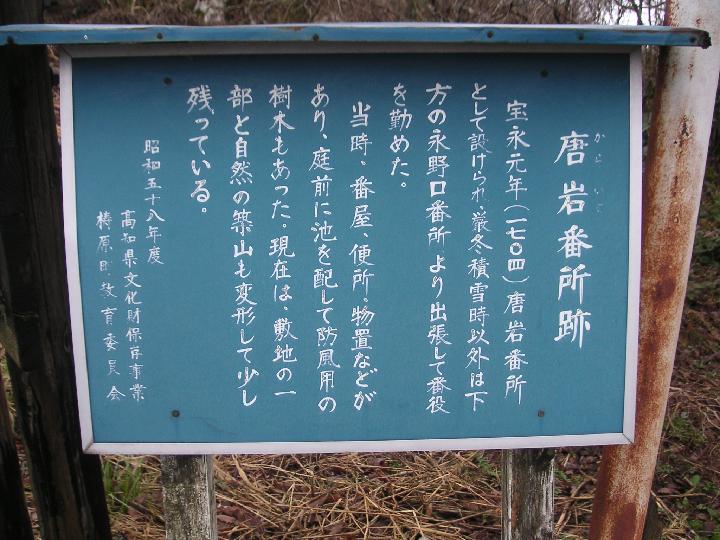 唐岩番所跡
からいわ
宝永元年(一七〇四)唐岩番所
として設けられ、厳冬積雪時以外は下
方の永野口番所より出張して番役
を勤めた。
当時、番屋、便所、物置などが
あり、庭前に池を配して防風用の
樹木もあった。現在は、敷地の一
部と自然の築山も変形して少し
残っている。
昭和五十八年度
高知県文化財保存事業
梼原町教育委員会